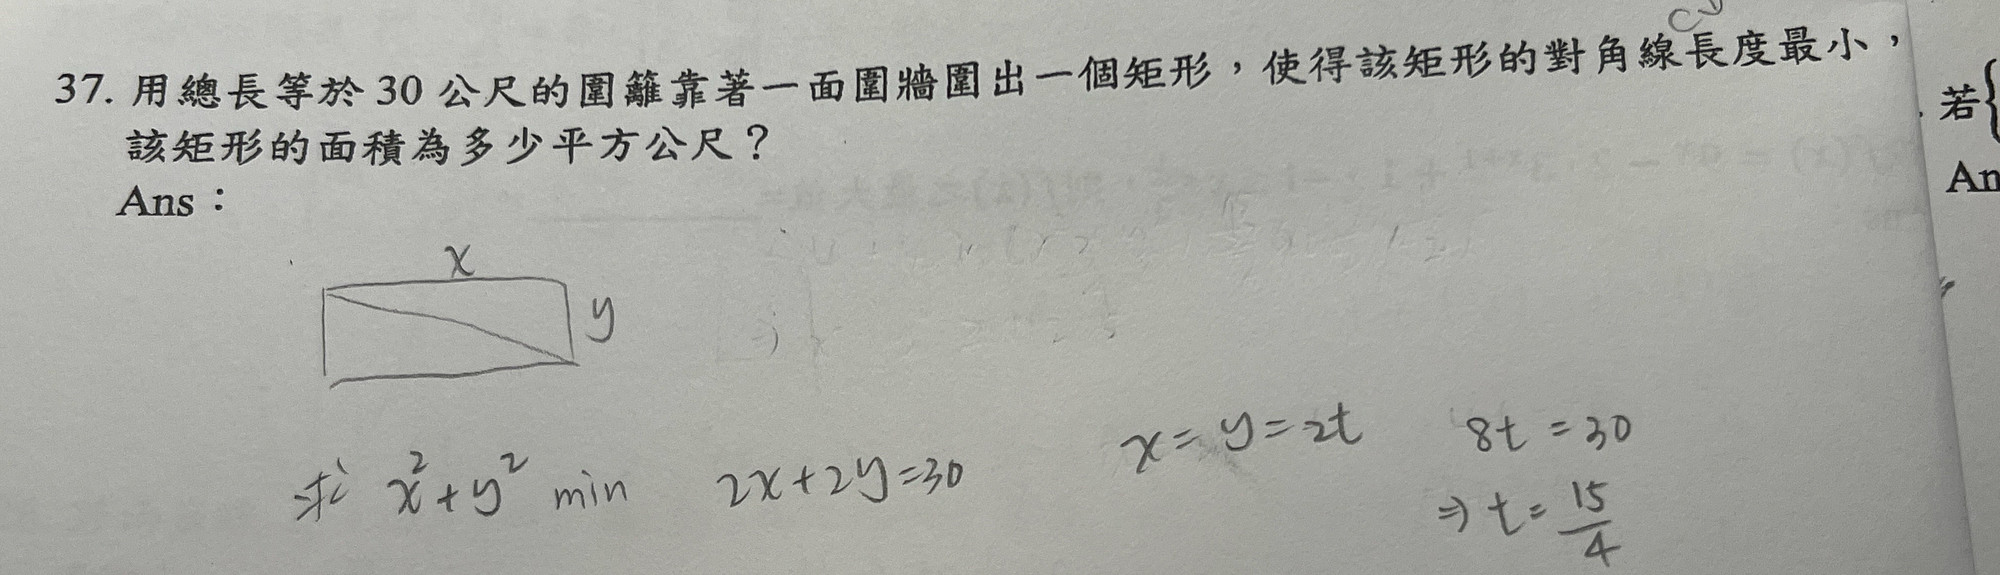 37. 用總長等於 30 公尺的圍籬靠著一面圍牆圍出一個矩形，使得該矩形的對角線長度最小，
該矩形的面積為多少平方公尺？
Ans：
若{
An
x
y
求 x²+y² min 2x+2y=30 x=y=2t 8t=30
⇒ t=15/4